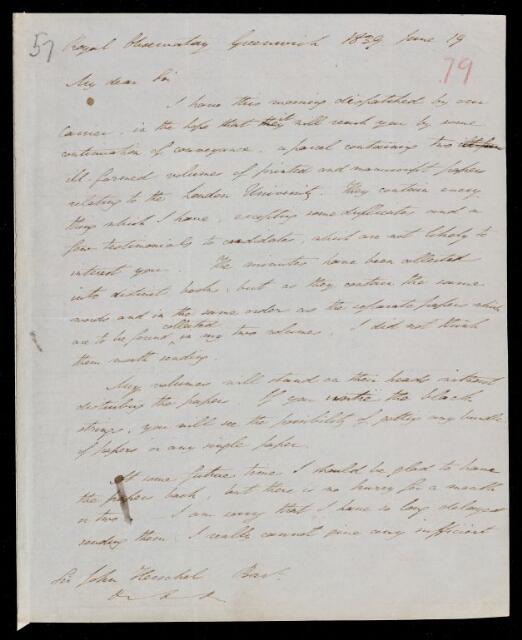 57
Royal Observatory Greenwich 1839 June 19
79
My dear Sir
I have this morning dispatched by our
Carrier, in the hope that it will reach you by some
continuation of conveyance, a parcel containing two
ill-formed volumes of printed and manuscript papers
relating to the London University. They contain every
thing which I have, excepting some duplicates and a
few testimonials to candidates, which are not likely to
interest you. The minutes have been collected
into distinct books, but as they contain the same
words and in the same order as the separate papers which
are to be found collected in my two volumes, I did not think
them worth sending.
My volumes will stand on their heads without
disturbing the papers. If you untie the black
strings, you will see the possibility of getting any bundle
of papers or any single paper.
At some future time I should be glad to have
the papers back, but there is no hurry for a month
or two. I am sorry that I have so long delayed
sending them: I really cannot give any sufficient
Sir John Herschel Bart.